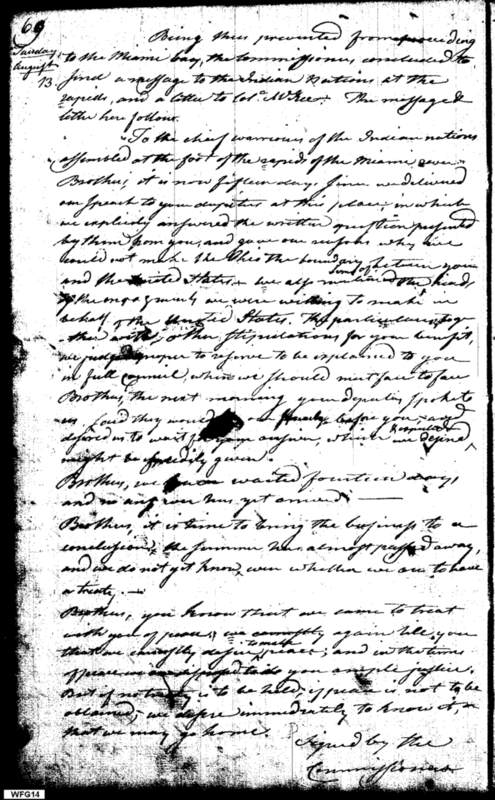 69
Tuesday
August
13.
Being thus prevented from proceeding
to the Miami bay, the Commissioners concluded to
send a message to the Indian Nations at the
rapids, and a letter to Colo. McKee. The message &
letter here follow.
To the chief warriours of the Indian nations
assembled at the foot of the rapids of the Miami river
Brothers, it is now fifteen days, since we delivered
our speech to your deputies at this place, in which
we explicitly answered the written question presented
by them from you, and gave our reasons why we
could not make the Ohio the boundary between you
and the United States. We also mentioned some of the heads
of the engagements we were willing to make in
behalf of the United States. The particulars, tog
ther with other stipulations for your benefit,
we judged proper to reserve to be explained to you
in full council, when we should meet face to face
Brothers, the next morning your deputies spoke to
us, said they would our speech before you, and
desired us to wait for your answer, which we desired
might be speedily given.
Brothers, we have waited fourteen days,
and no answer has yet arrived
Brothers, it is time to bring the business to a
conclusion, the summer has almost passed away,
and we do not yet know, even whether we are to have
a treaty.
Brothers, you know that we came to treat
with you of peace, we earnestly again tell you
that we earnestly desire peace; and in the terms
of peace we are disposed to do you ample justice.
But if no treaty is to be held, if peace is not to be
obtained, we desire immediately to know it,
that we may go home.
Signed by the
Commissioners
WFG14